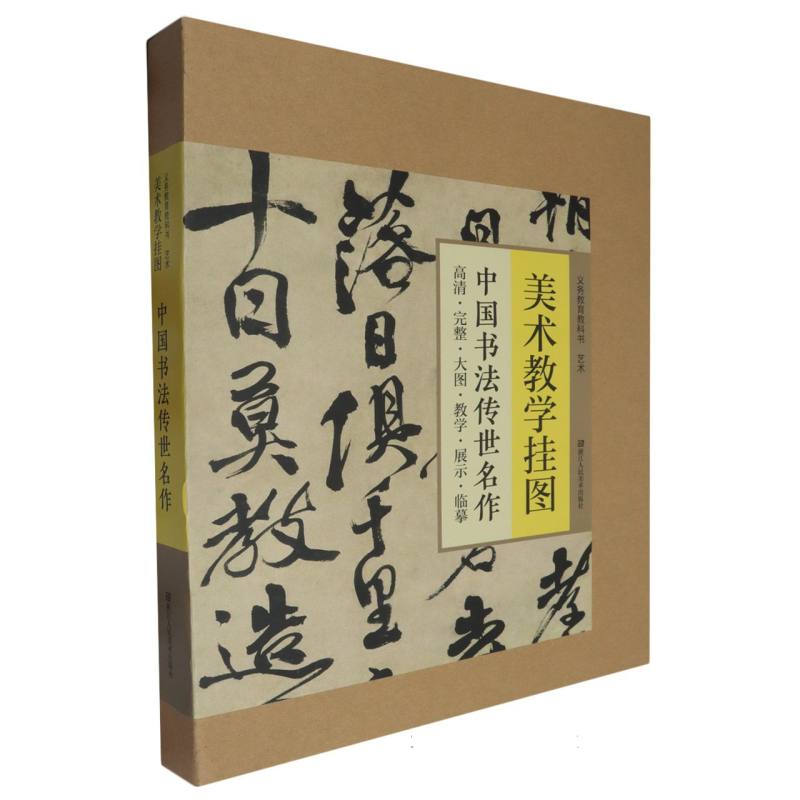 义务教育教科书 艺术
美术教学挂图
中国书法传世名作
浙江人民美术出版社
义务教育教科书 艺术
美术教学挂图
中国书法传世名作
高清·完整·大图·教学·展示·临摹
浙江人民美术出版社
落日俱千里
十日莫教造